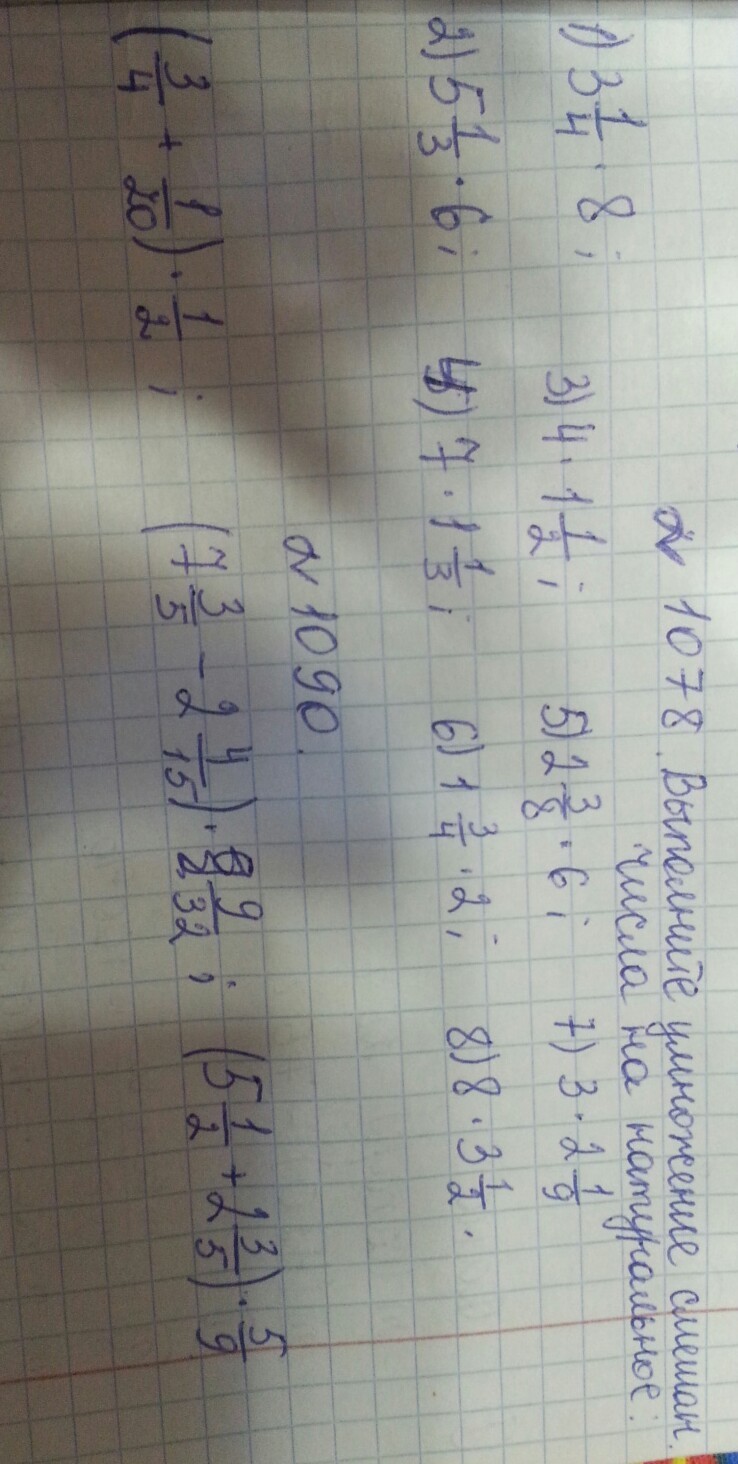 № 1078. Выполните умножение смешан.
числа на натуральное:
1) 3 1/4 · 8; 3) 4 · 1 1/2; 5) 2 3/8 · 6; 7) 3 · 2 1/9
2) 5 1/3 · 6; 4) 7 · 1 1/3; 6) 1 3/4 · 2; 8) 8 · 3 1/2.
№ 1090.
(3/4 + 1/20) · 1/2; (7 3/5 - 2 4/15) · 9/32; (5 1/2 + 2 3/5) · 5/9